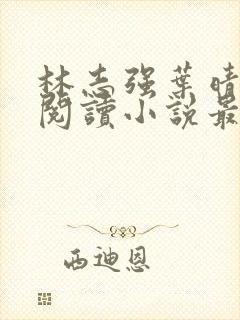 林志强葉晴
閱讀小說最
西迪恩